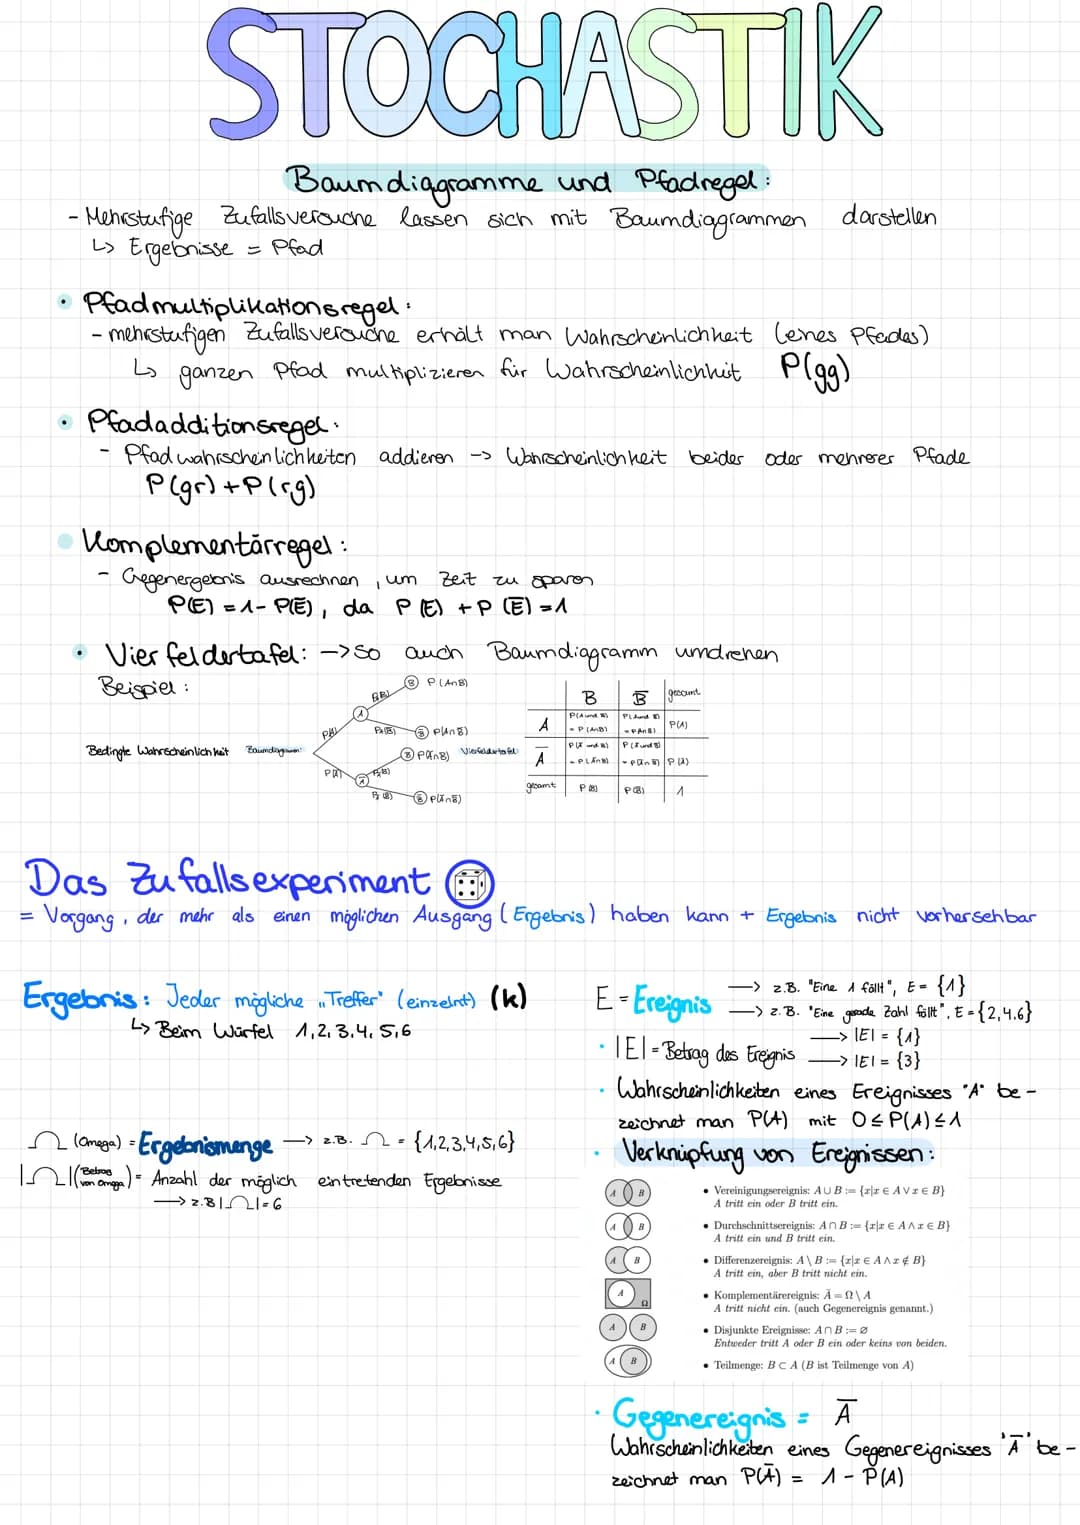 STOCHASTIK
Baumdiagramme und Pfadregel:
- Mehrstufige Zufallsversuche lassen sich mit Baumdiagrammen darstellen
↳ Ergebnisse = Pfad
• Pfadmultiplikationsregel:
- mehrstufigen Zufallsversuche erhält man Wahrscheinlichkeit (eines Pfades)
↳ ganzen Pfad multiplizieren für Wahrscheinlichkeit P(gg)
• Pfadadditionsregel:
- Pfadwahrscheinlichkeiten addieren -> Wahrscheinlichkeit beider oder mehrerer Pfade
P(gr) + P(rg)
• Komplementärregel:
- Gegenergebnis ausrechnen, um Zeit zu sparen
P(E) = 1 - P(E̅), da P(E) + P(E̅) = 1
• Vierfeldertafel: -> so auch Baumdiagramm umdrehen
Beispiel:
Bedingte Wahrscheinlichkeit Baumdiagramm:
P(A) A B P(A∩B)
B̅ P(A∩B̅)
P(A̅) A̅ B P(A̅∩B)
B̅ P(A̅∩B̅)
Vierfeldertafel
B B̅ gesamt
A P(A und B) = P(A∩B) P(A und B̅) = P(A∩B̅) P(A)
A̅ P(A̅ und B) = P(A̅∩B) P(A̅ und B̅) = P(A̅∩B̅) P(A̅)
gesamt P(B) P(B̅) 1
Das Zufallsexperiment
= Vorgang, der mehr als einen möglichen Ausgang (Ergebnis) haben kann + Ergebnis nicht vorhersehbar
Ergebnis: Jeder mögliche „Treffer" (einzelnt) (k)
↳ Beim Würfel 1,2,3,4,5,6
Ω (Omega) = Ergebnismenge -> z.B. Ω = {1,2,3,4,5,6}
|Ω| (Betrag von Omega) = Anzahl der möglich eintretenden Ergebnisse
-> z.B |Ω| = 6
E = Ereignis -> z.B. "Eine 1 fällt", E = {1}
-> z.B. "Eine gerade Zahl fällt", E = {2,4,6}
• |E| = Betrag des Ereignis -> |E| = {1}
-> |E| = {3}
• Wahrscheinlichkeiten eines Ereignisses "A" be-
zeichnet man P(A) mit 0 ≤ P(A) ≤ 1
• Verknüpfung von Ereignissen:
A B
• Vereinigungsereignis: A ∪ B := {x|x ∈ A ∨ x ∈ B}
A tritt ein oder B tritt ein.
A B
• Durchschnittsereignis: A ∩ B := {x|x ∈ A ∧ x ∈ B}
A tritt ein und B tritt ein.
A B
• Differenzereignis: A \ B := {x|x ∈ A ∧ x ∉ B}
A tritt ein, aber B tritt nicht ein.
A Ω
• Komplementärereignis: Ā = Ω \ A
A tritt nicht ein. (auch Gegenereignis genannt.)
A B
• Disjunkte Ereignisse: A ∩ B := ∅
Entweder tritt A oder B ein oder keins von beiden.
A B
• Teilmenge: B ⊂ A (B ist Teilmenge von A)
• Gegenereignis = A̅
Wahrscheinlichkeiten eines Gegenereignisses 'A̅' be-
zeichnet man P(A̅) = 1 - P(A)